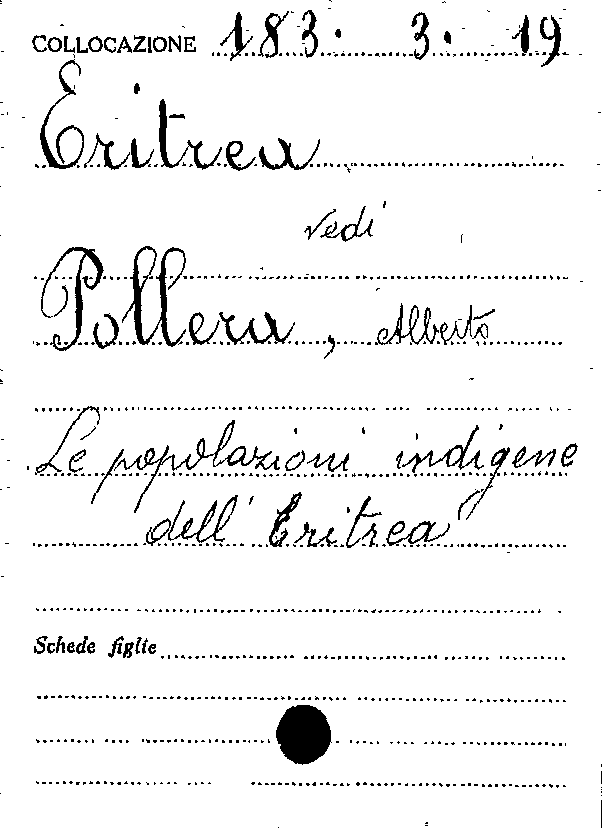 COLLOCAZIONE 183. 3. 19
Eritrea
vedi
Pollera, Alberto
Le popolazioni indigene
dell'Eritrea
Schede figlie